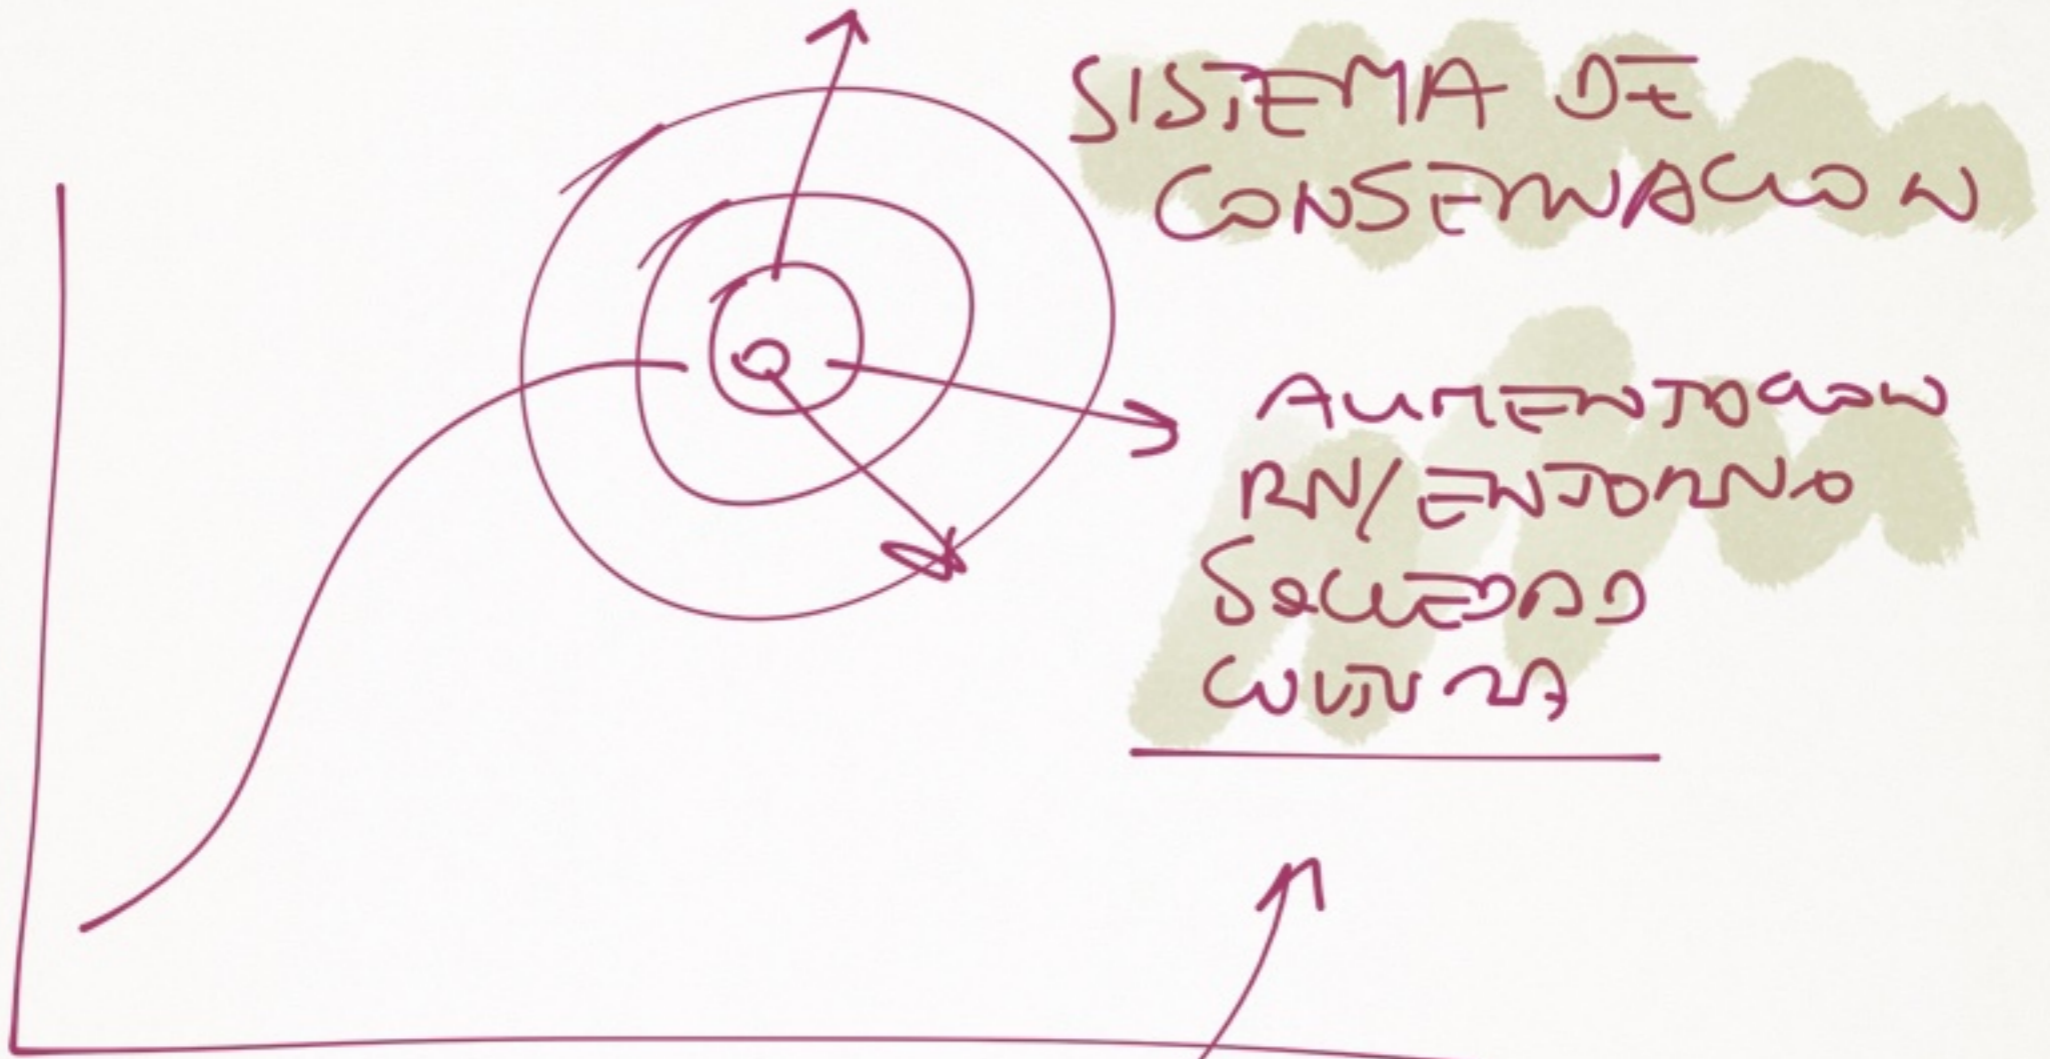 SISTEMA DE
CONSERVACION
ALIMENTACION
RN/ENTORNO
SOCIEDAD
CULTURA